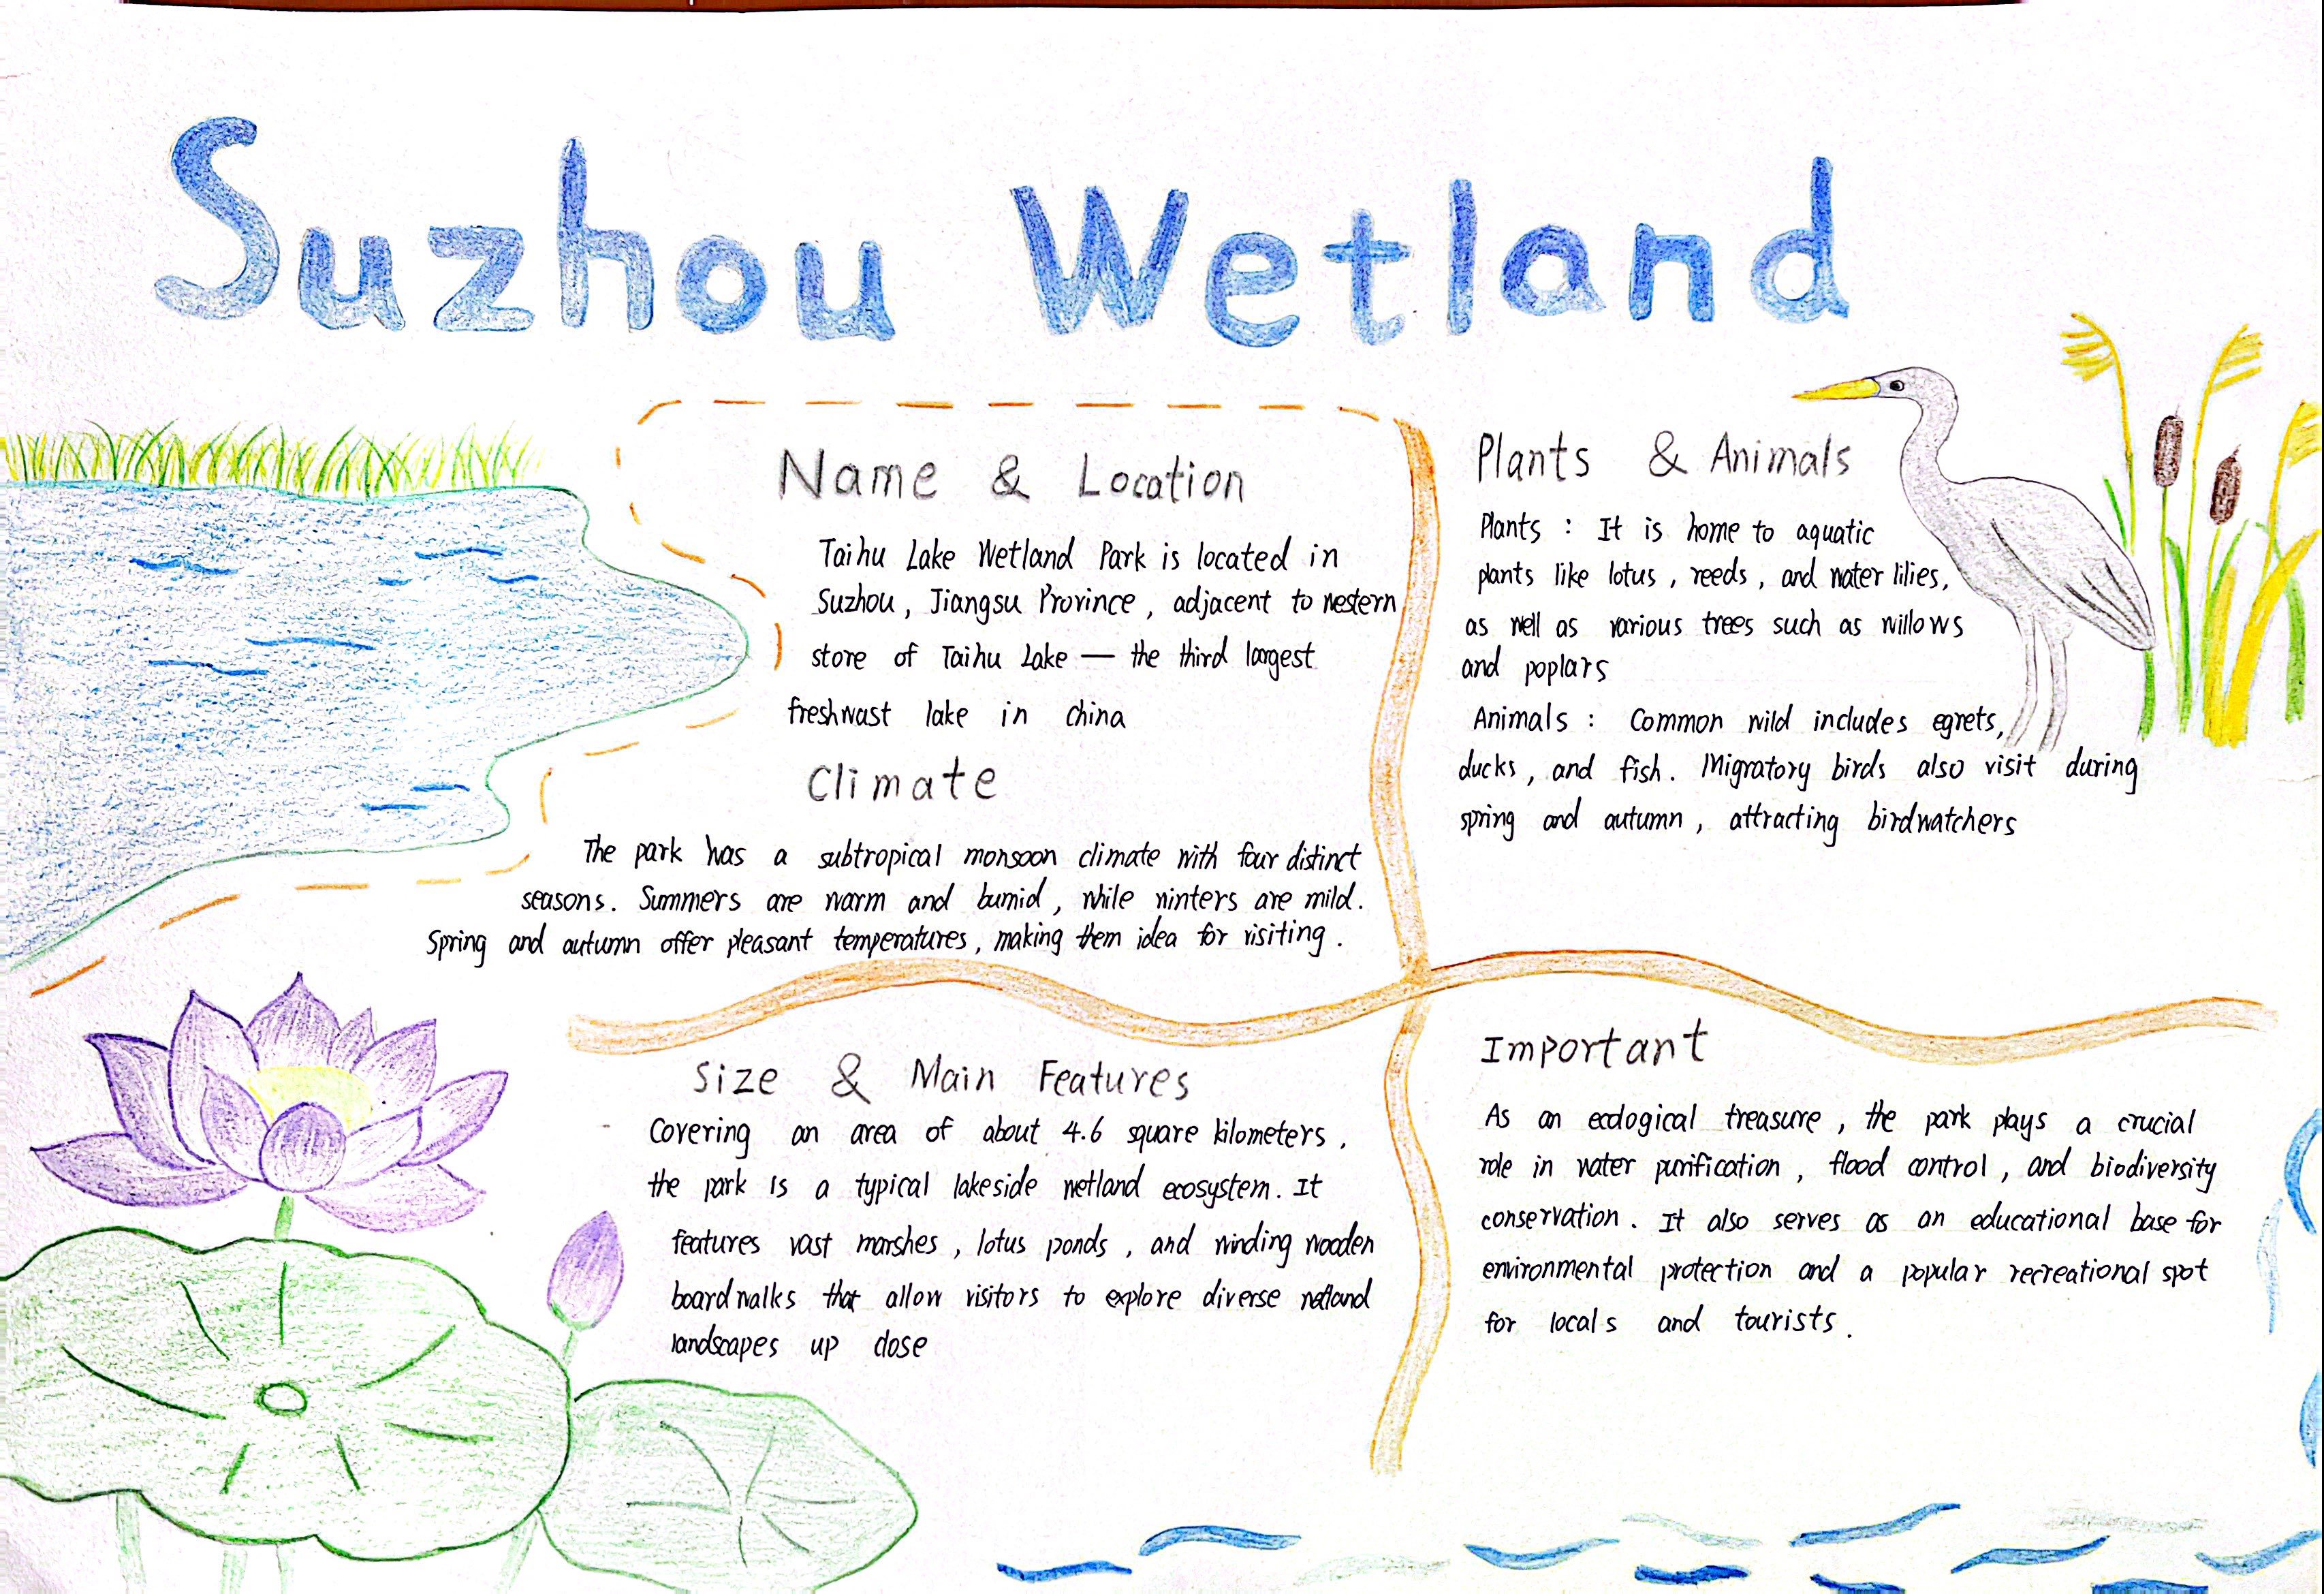 Suzhou Wetland
Name & Location
Taihu Lake Wetland Park is located in
Suzhou, Jiangsu Province, adjacent to western
store of Taihu Lake — the third largest
freshwast lake in china
Climate
The park has a subtropical monsoon climate with four distinct
seasons. Summers are warm and bumid, while winters are mild.
Spring and autumn offer pleasant temperatures, making them idea for visiting.
Plants & Animals
Plants : It is home to aquatic
plants like lotus, reeds, and water lilies,
as well as various trees such as willows
and poplars
Animals : Common wild includes egrets,
ducks, and fish. Migratory birds also visit during
spring and autumn, attracting birdwatchers
Size & Main Features
Covering an area of about 4.6 square kilometers,
the park is a typical lakeside wetland ecosystem. It
features vast marshes, lotus ponds, and winding wooden
boardwalks that allow visitors to explore diverse wetland
landscapes up close
Important
As an ecological treasure, the park plays a crucial
role in water purification, flood control, and biodiversity
conservation. It also serves as an educational base for
environmental protection and a popular recreational spot
for locals and tourists.